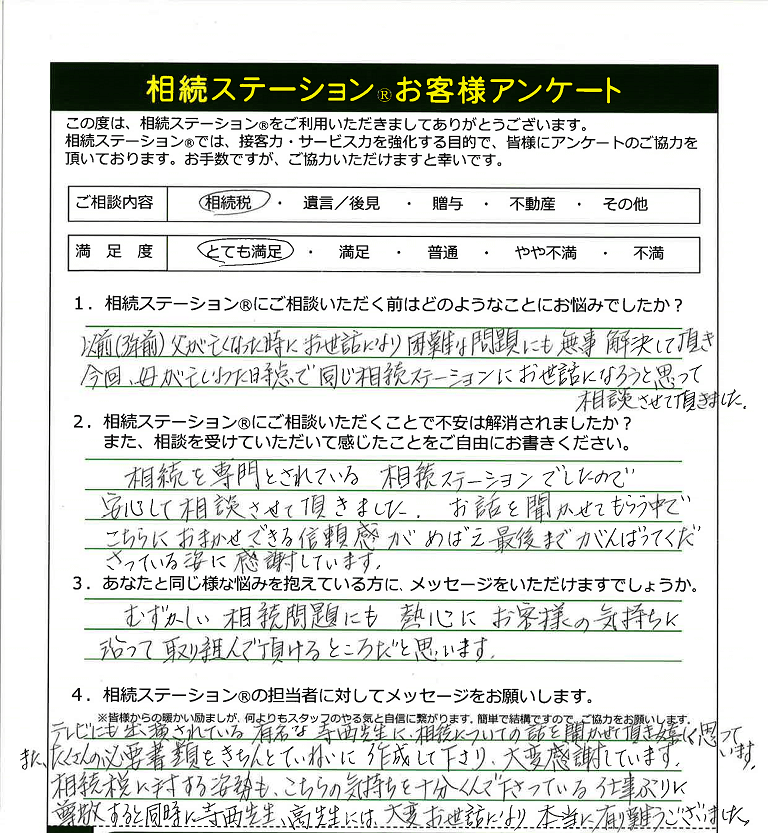 相続ステーション®お客様アンケート
この度は、相続ステーション®をご利用いただきましてありがとうございます。
相続ステーション®では、接客力・サービス力を強化する目的で、皆様にアンケートのご協力を
頂いております。お手数ですが、ご協力いただけますと幸いです。
ご相談内容 相続税 ・ 遺言/後見 ・ 贈与 ・ 不動産 ・ その他
満 足 度 とても満足 ・ 満足 ・ 普通 ・ やや不満 ・ 不満
1．相続ステーション®にご相談いただく前はどのようなことにお悩みでしたか？
以前(3年前)父が亡くなった時にお世話になり困難な問題にも無事解決して頂き
今回、母が亡くなった時点で同じ相続ステーションにお世話になろうと思って
相談させて頂きました。
2．相続ステーション®にご相談いただくことで不安は解消されましたか？
また、相談を受けていただいて感じたことをご自由にお書きください。
相続を専門とされている相続ステーションでしたので
安心して相談させて頂きました。お話を聞かせてもらう中で
こちらにおまかせできる信頼感がめばえ最後までがんばってくだ
さっている姿に感謝しています。
3．あなたと同じ様な悩みを抱えている方に、メッセージをいただけますでしょうか。
むずかしい相続問題にも熱心にお客様の気持ちに
沿って取り組んで頂けるところだと思います。
4．相続ステーション®の担当者に対してメッセージをお願いします。
※皆様からの暖かい励ましが、何よりもスタッフのやる気と自信に繋がります。簡単で結構ですので、ご協力をお願いします。
テレビにも出演されている有名な寺西先生に、相続についての話を聞かせて頂き嬉しく思って
います。
また、たくさんの必要書類をきちんとていねいに作成して下さり、大変感謝しています。
相続税に対する姿勢も、こちらの気持ちを十分くんで下さっている仕事ぶりに
尊敬すると同時に寺西先生、高先生には、大変お世話になり本当に有難うございました。